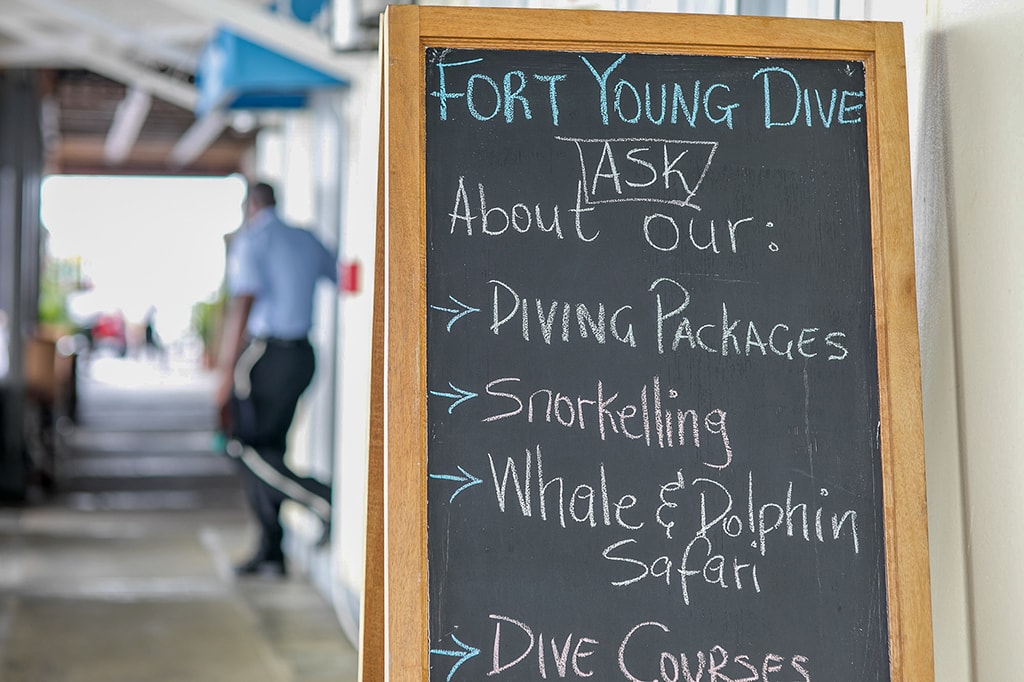 FORT YOUNG DIVE
ASK
About our:
→ DIVING PACKAGES
→ Snorkelling
→ Whale & Dolphin
Safari
→ DIVE COURSES